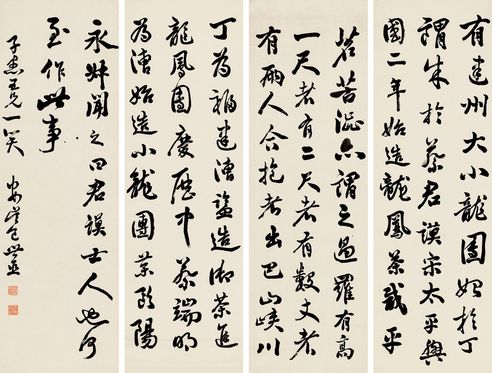 有建州大小龍團始於丁
謂成於蔡君謨宋太平興
國二年始造龍鳳茶咸平
茗苦澀亦謂之過羅有高
一尺者有二尺者有數丈者
有兩人合抱者出巴山峽川
丁為福建漕監造御茶進
龍鳳團慶歷中蔡端明
為漕始造小龍團茶歐陽
永叔聞之曰君謨士人也何
至作此事
兄一笑 安吳包世臣